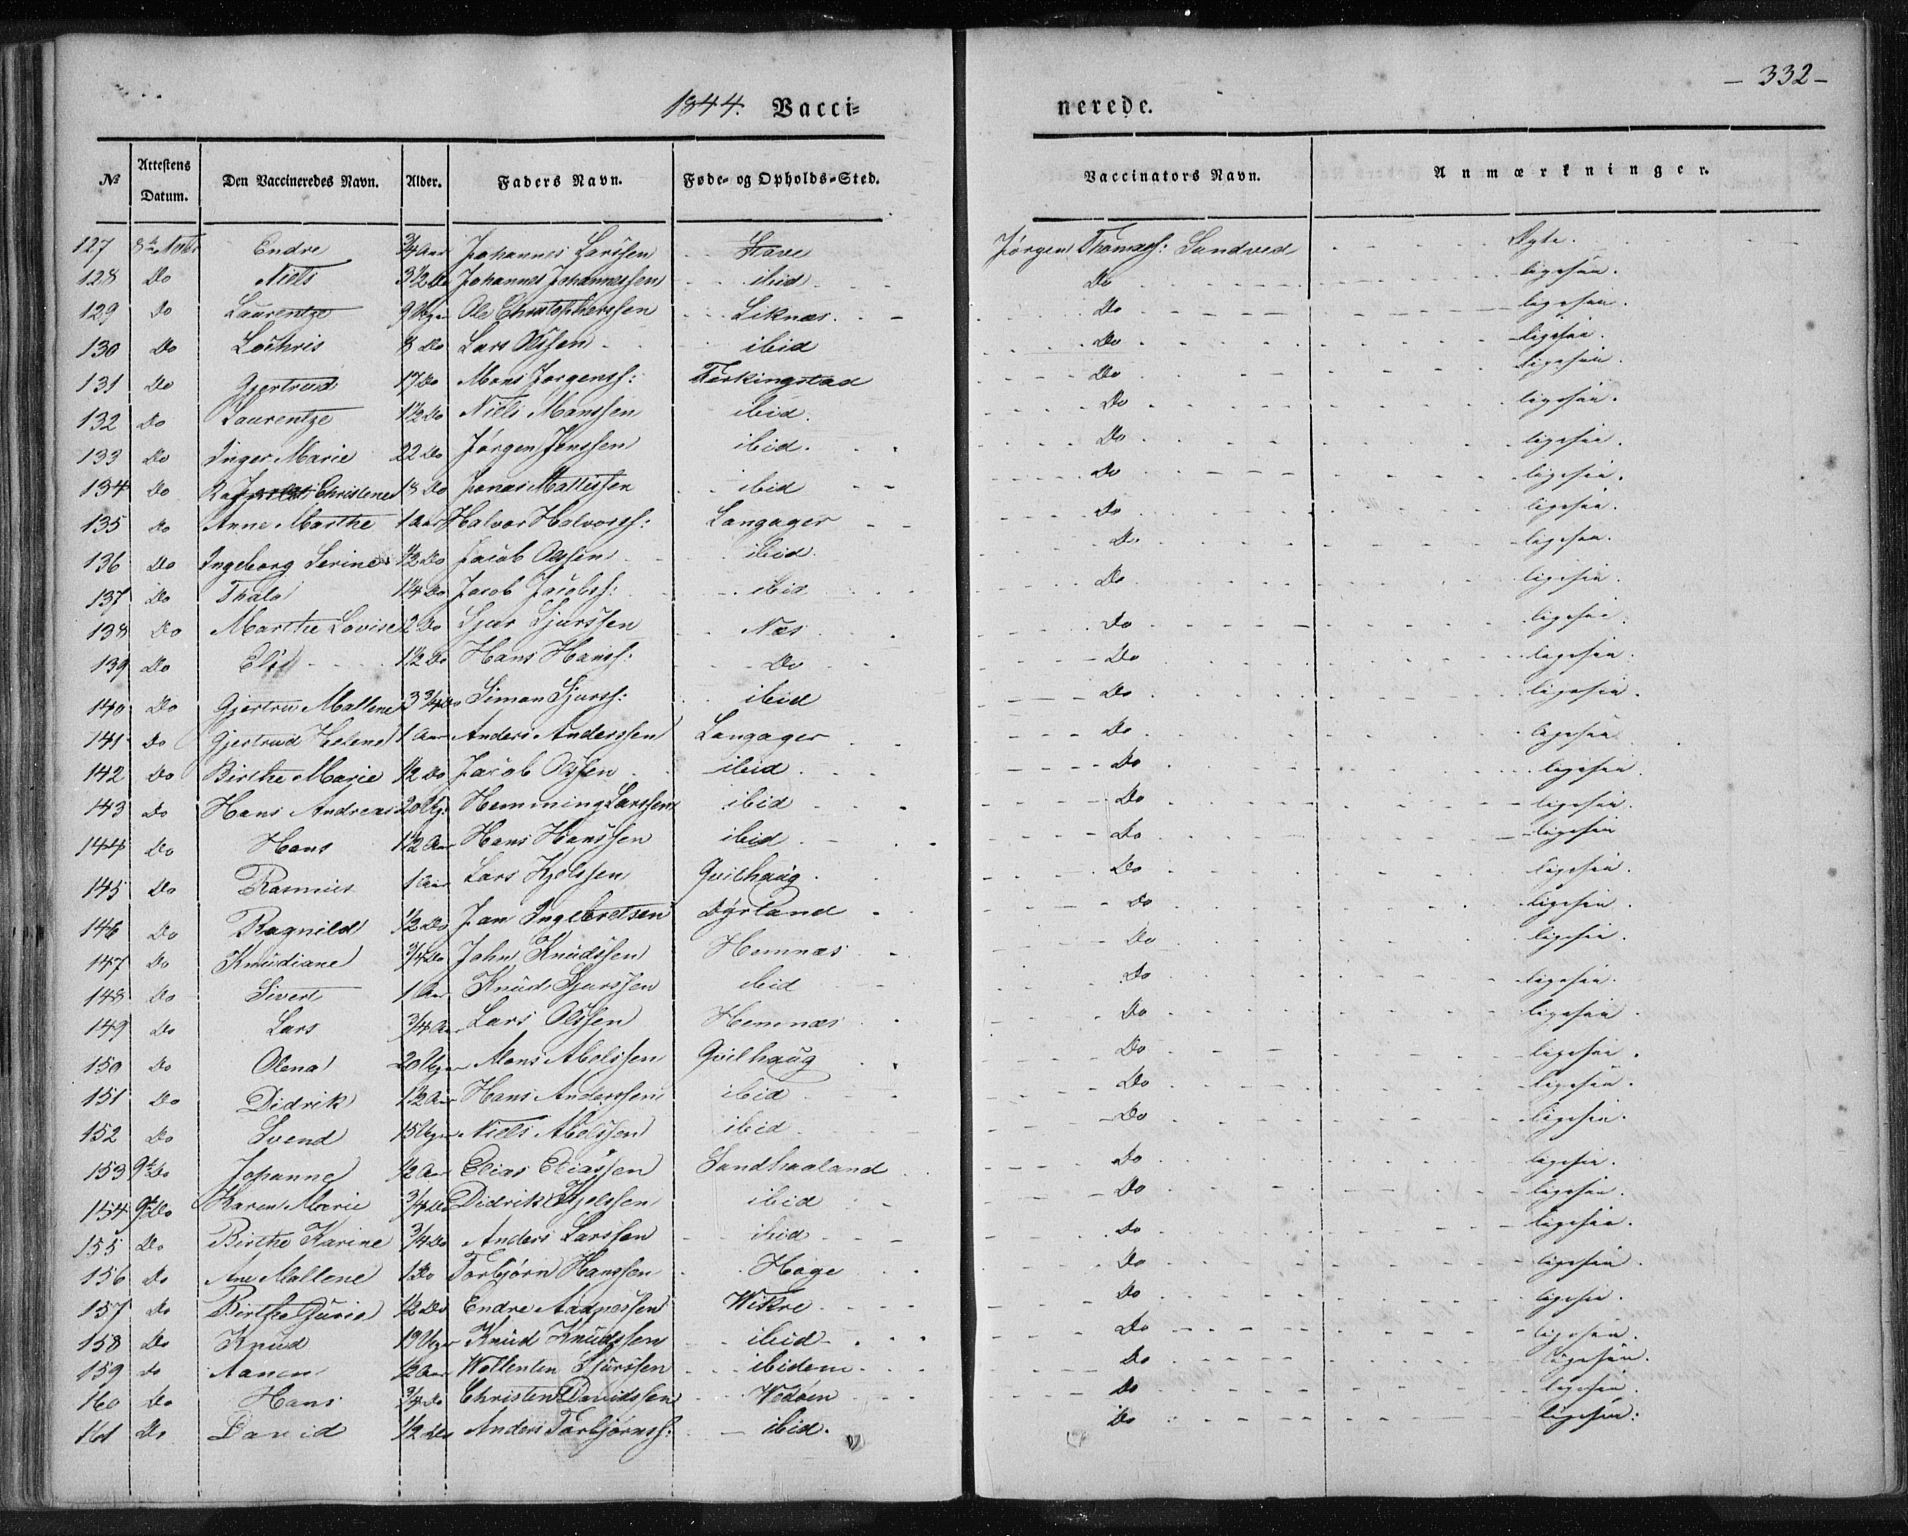 - 332 -
1844. Vacci- nerede.
№ Attestens Datum. Den Vaccineredes Navn. Alder. Faders Navn. Føde- og Opholds-Sted. Vaccinators Navn. Anmærkninger.
127 8de Endre 3/4 Aar Johannes Larssen Jørgen Sandved Ægte.
128 Do Niels 3 1/2 Do Johannes Johannessen ibid Do ligesaa.
129 Do Laurentze 9 Uger Ole Christophersen Liknæs. Do ligesaa.
130 Do 8 Do Lars Olssen ibid Do ligesaa.
131 Do Gjertrud 17 Do Mons Jørgens: Ferkingstad Do ligesaa.
132 Do Laurentze 1 1/2 Do Niels Monssen ibid. Do ligesaa.
133 Do Inger Marie 22 Do Jørgen Jonssen ibid. Do ligesaa.
134 Do Christene 18 Do Jonas Mattissen ibid Do ligesaa.
135 Do Anne Marthe 1 Aar Halvor Halvorss: Langager Do ligesaa.
136 Do Ingeborg Serine 1/2 Do Jacob Olssen ibid. Do ligesaa.
137 Do Thala 1/4 Do Jacob Jacobss: ibid Do ligesaa.
138 Do Marthe Lovise 2 Do Sjur Sjurssen Næs Do ligesaa.
139 Do 1 1/2 Do Hans Hanss: Do Do ligesaa.
140 Do Gjertru Mallene 3 3/4 Do Simon Sjurss: ibid Do ligesaa.
141 Do Gjertrud Helene 1 Aar Anders Anderssen Langager Do ligesaa
142 Do Birthe Marie 1/2 Do Jacob Olssen ibid Do ligesaa.
143 Do Hans Andreas 20 Ug: Hemming Larssen ibid Do ligesaa.
144 Do Hans 1 1/2 Aar Hans Hanssen ibid Do ligesaa
145 Do Rasmus 1 Aar Lars Kjelssen Qvilhaug. Do ligesaa.
146 Do Ragnild 1/2 Do Jan Ingebretsen Dyrland Do ligesaa.
147 Do Knudiane 3/4 Do John Knudssen Hemnæs Do ligesaa.
148 Do Sivert 1 Aar Knud Sjurssen ibid Do ligesaa.
149 Do Lars 3/4 Aar Lars Olssen Hemnæs Do ligesaa.
150 Do Olena 20 Uger Mons Abelssen Qvilhaug Do ligesaa.
151 Do Didrik 1 1/2 Aar Hans Anderssen ibid Do ligesaa.
152 Do Svend 15 Uger Niels Abelssen ibid Do ligesaa.
153 9de Do Johanne 1/2 Aar Elias Eliassen Sandhaaland Do ligesaa.
154 9de Do Karen Marie 3/4 Do Didrik Kjelssen ibid Do ligesaa.
155 Do Birthe Karine 3/4 Do Anders Larssen ibid Do ligesaa.
156 Do Ane Mallene 1 Do Torbjørn Hanssen Hage Do ligesaa.
157 Do Birthe Gurie 1/2 Do Endre Aadnessen Wikre Do ligesaa.
158 Do Knud 19 Uger Knud Knudssen ibid Do ligesaa.
159 Do Aanen 1/2 Aar Wollentin Sjurssen ibidem Do ligesaa.
160 Do Hans 3/4 Do Christen Davidssen Wedøen Do ligesaa.
161 Do David 1/2 Do Anders Torbjørnss: ibid. Do ligesaa.